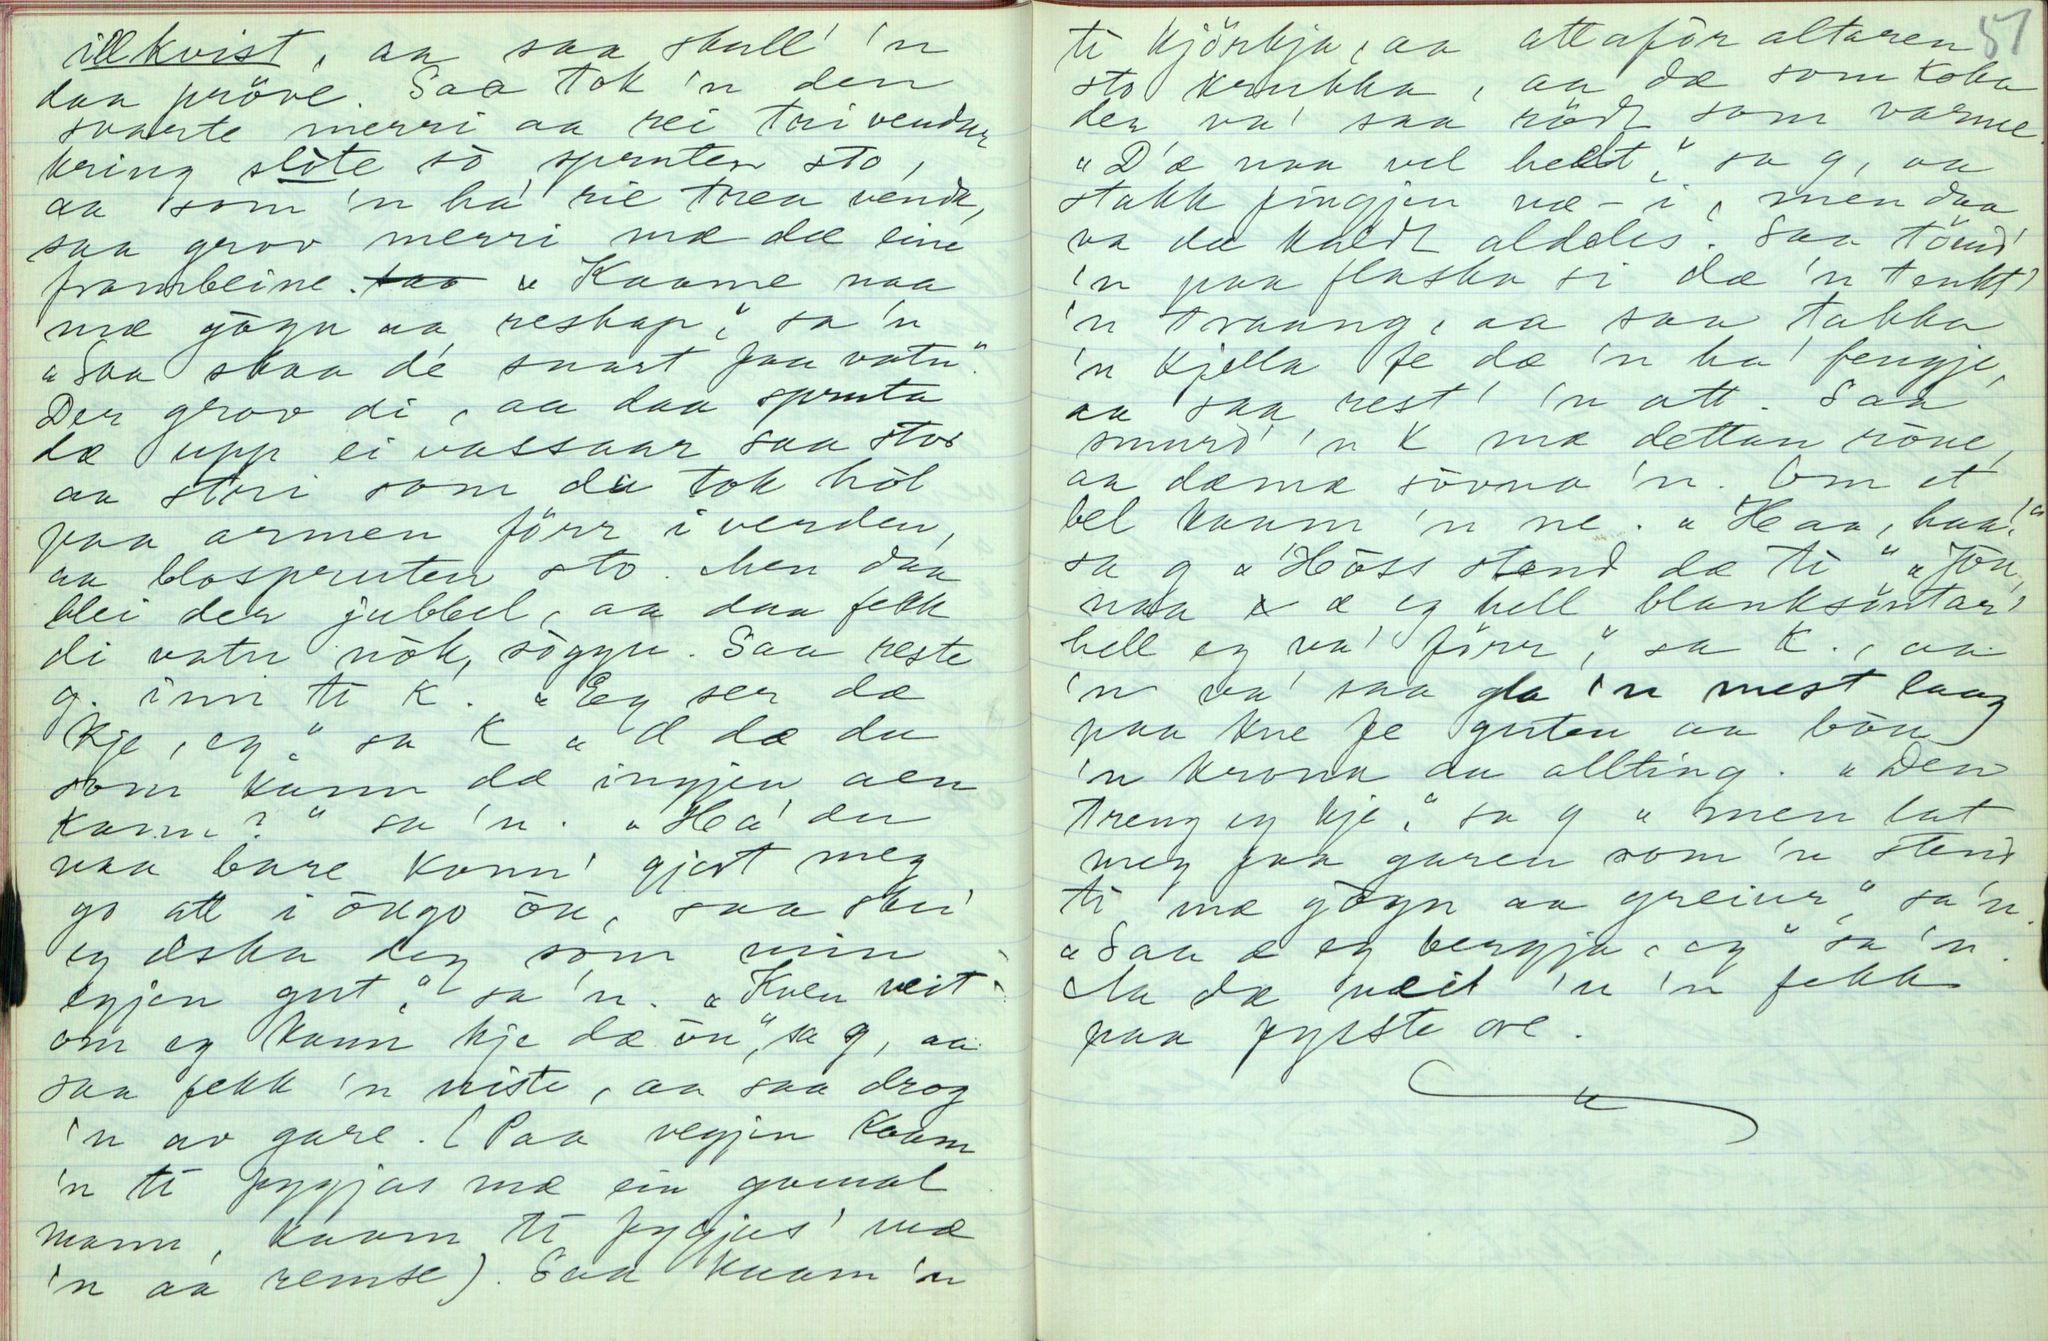 illkvist, aa saa skull' 'n
daa pröve. Saa tok 'n den
svarte merri aa rei tri vendur
kring slôte so spruten sto,
aa som 'n ha' rie trea vende,
saa grov merri mæ dæ eine
frambeine. saa "Kaame naa
mæ gôgn aa reskap," sa 'n
"Saa skaa dé snart faa vatn."
Der grov di, aa daa spruta
dæ upp ei vassaar saa stor
aa stri som da tok hôl
paa armen förr i verden,
aa blospruten sto. Men daa
blei der jubbel, aa daa fekk
di vatn nôk, sôggu. Saa reste
g. inn ti K. "Eg ser dæ
kje, eg" sa K "Æ dæ du
som kann dæ ingjen aen
kann?" sa 'n. "Ha' du
naa bare kunn' gjort meg
go att i ôugo ôu, saa sku'
eg elska deg som min
egjen gut," sa 'n. "Kven veit
om eg kann kje dæ ôu", sa g, aa
saa fekk 'n viste, aa saa drog
'n av gare. (Paa vegjen kaam
'n ti fygjas mæ ein gamal
mann, kaam ti fygjas' mæ
'n aa remse). Saa kaam 'n
57
ti kjörkja, aa attaför altaren
sto krukka, aa dæ som koka
der va' saa rödt som varme.
"D'æ naa vel heitt," sa g, aa
stakk fingjen næ-i, men daa
va dæ kaldt aldeles. Saa tömd'
'n paa flaska si dæ 'n tenkt'
'n traang, aa saa takka
'n kjella fe dæ 'n ha' fengje,
aa saa rest' 'n att. Saa
smurd' 'n K mæ dettan rône,
aa dæmæ sôvna 'n. Om et
bel kaam 'n ne. "Haa, haa!"
sa g "Hôss stend dæ ti" "Jôu,
naa æ eg hell blanksöntar'
hell eg va' förr," sa K., aa
'n va' saa gla 'n mest laag
paa kne fe guten aa bôu
'n krona aa allting. "Den
treng eg kje," sa g "men lat
meg faa garen som 'n stend
ti mæ gôgn aa greiur," sa 'n.
"Saa æ eg bergja, eg" sa 'n.
Aa dæ veit 'n 'n fekk
paa fyrste ore.